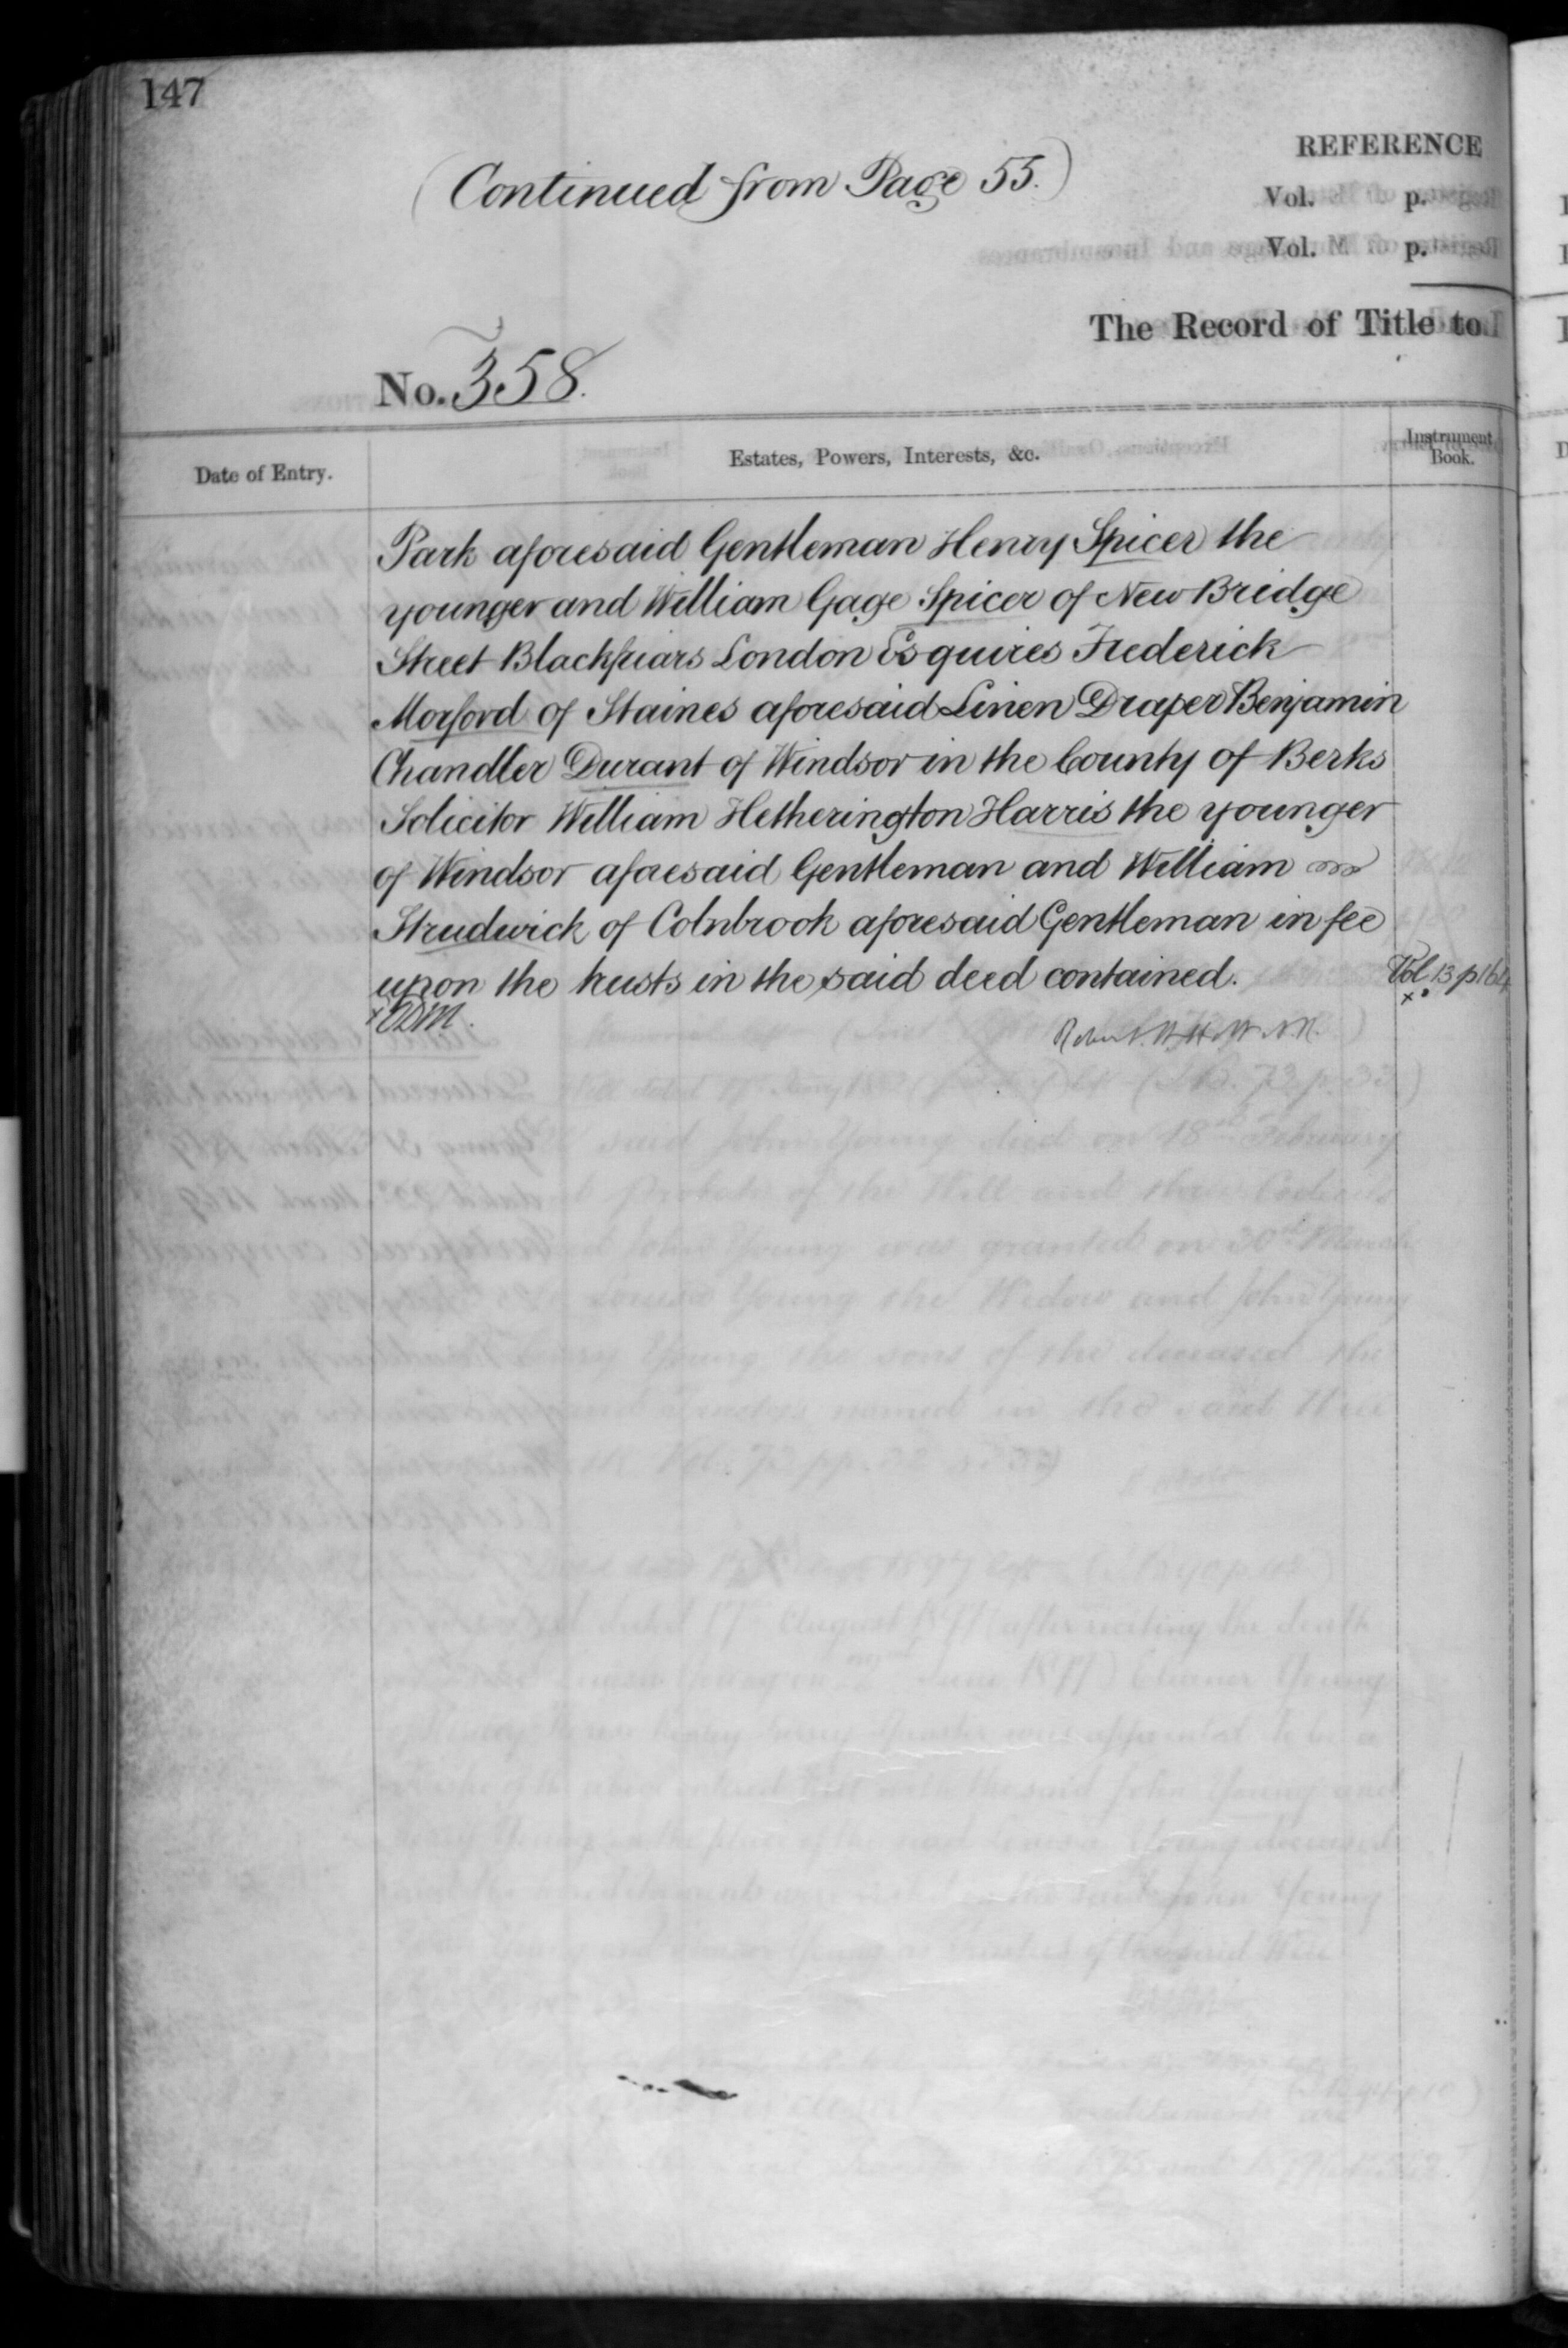 147
(Continued from Page 55.)
REFERENCE
Vol. p.
Vol. M p.
The Record of Title to
No. 358.
Date of Entry.
Estates, Powers, Interests, &c.
Instrument Book.
Park aforesaid Gentleman Henry Spicer the
younger and William Gage Spicer of New Bridge
Street Blackfriars London Esquires Frederick
Morford of Staines aforesaid Linen Draper Benjamin
Chandler Durant of Windsor in the County of Berks
Solicitor William Hetherington Harris the younger
of Windsor aforesaid Gentleman and William
Strudwick of Colnbrook aforesaid Gentleman in fee
upon the trusts in the said deed contained.
Vol. 13 p 164